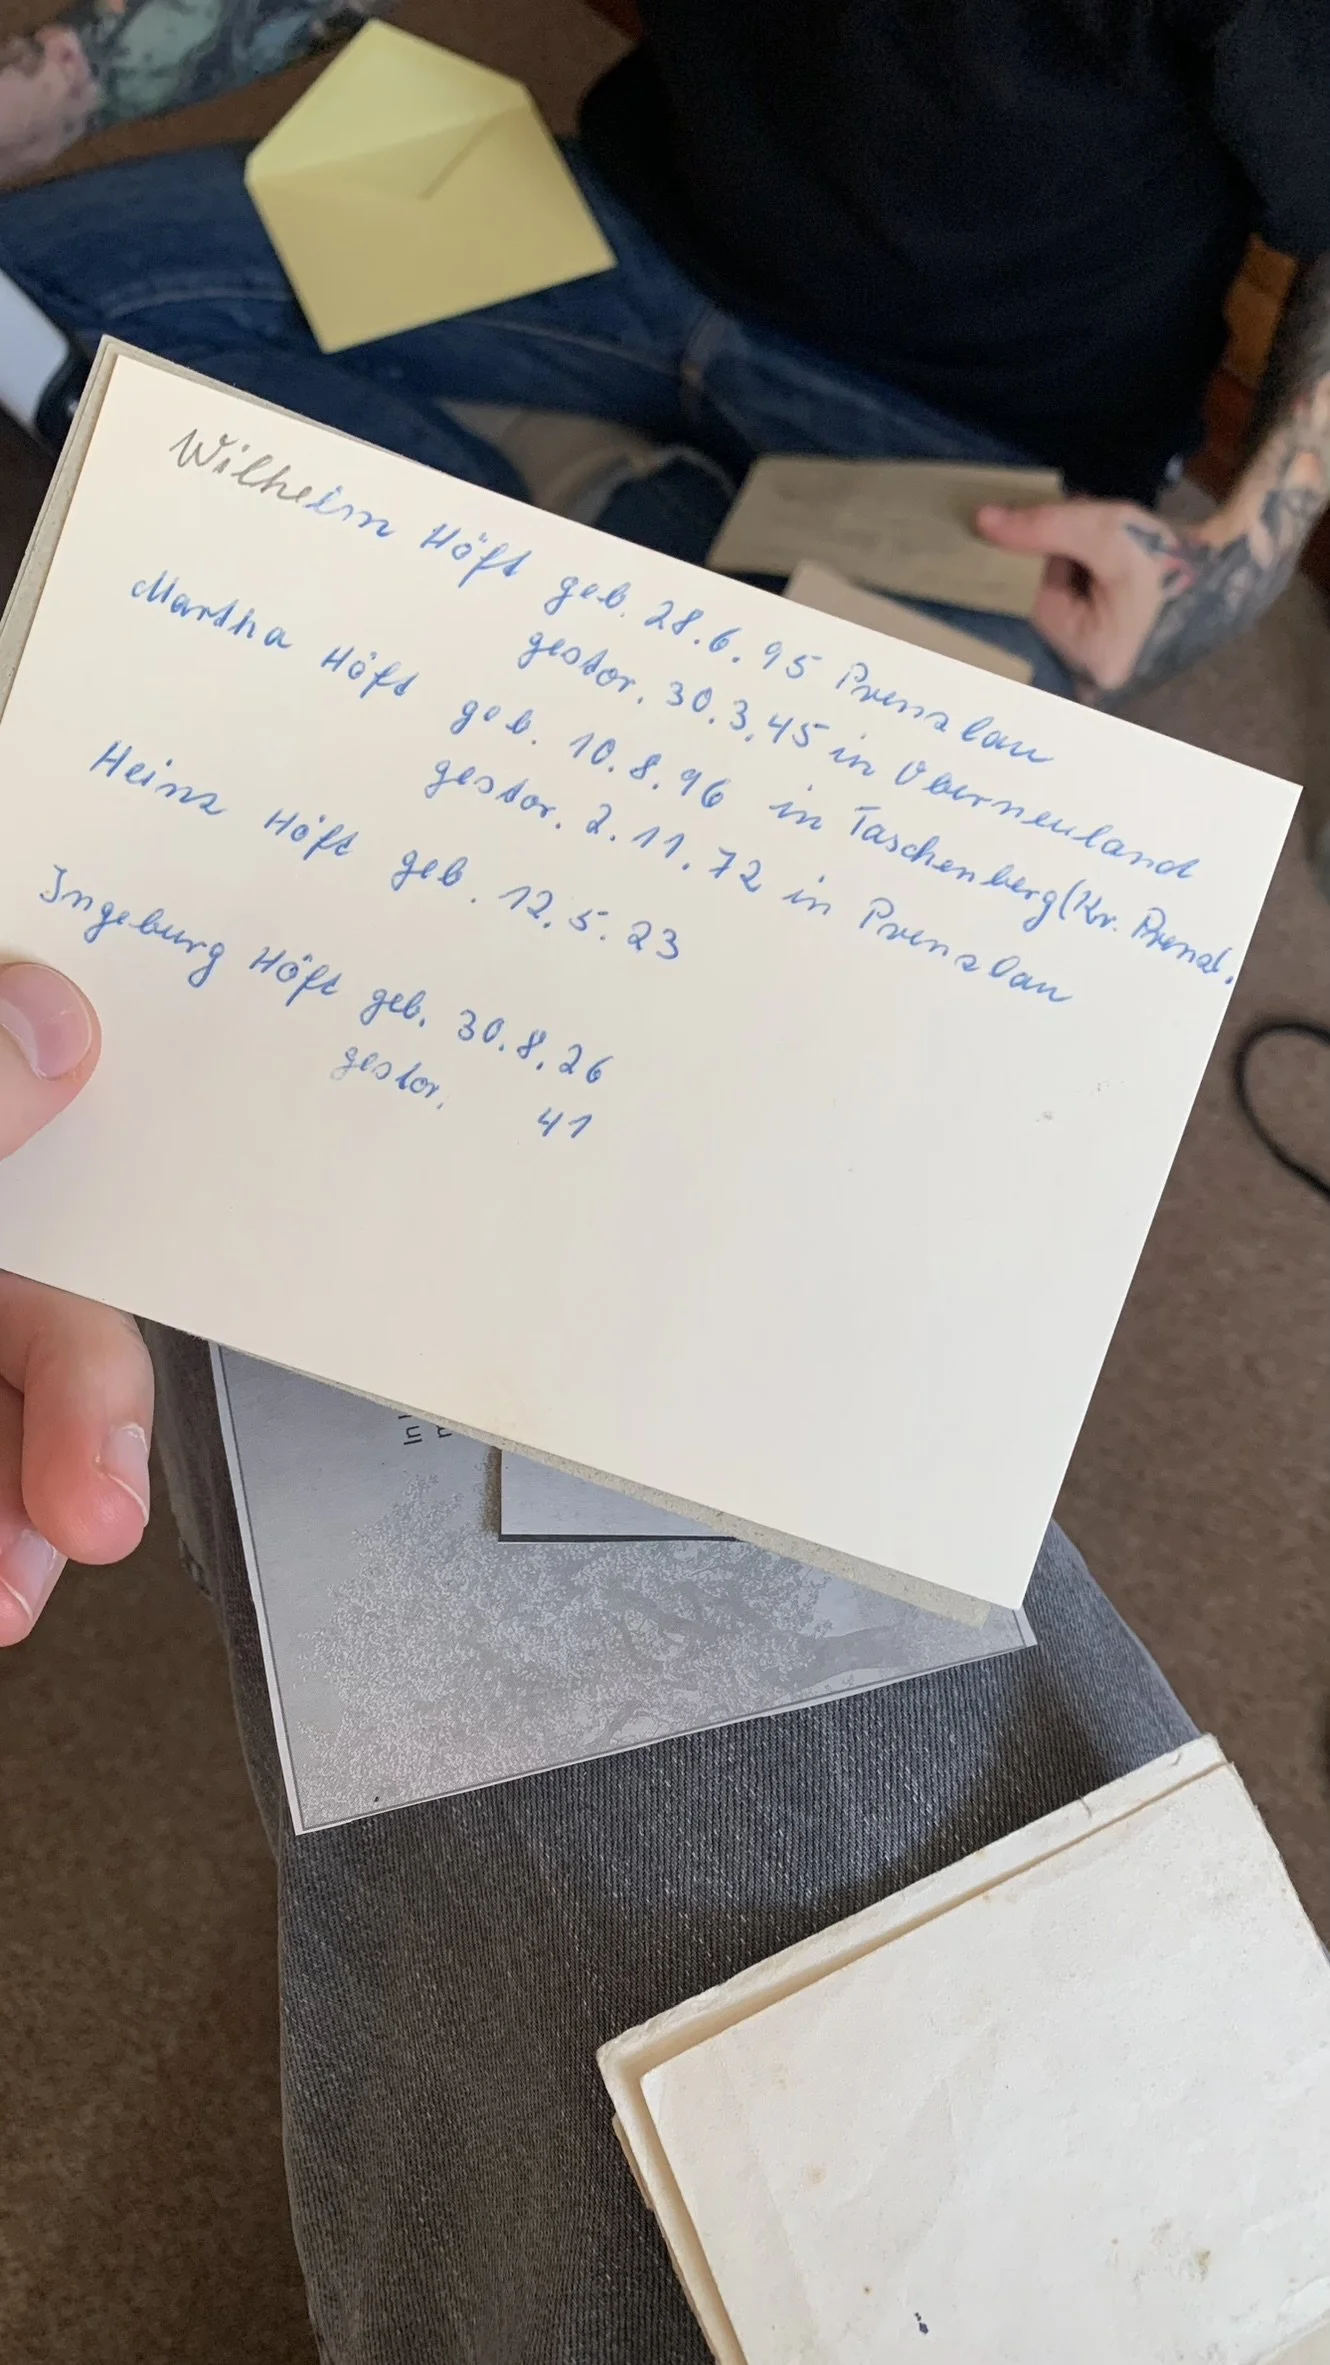 Wilhelm Höft geb. 28.6.95 Prenzlau
gestor. 30.3.45 in Oberneuland
Martha Höft geb. 10.8.96 in Taschenberg (Kr. Prenzl.
gestor. 2.11.72 in Prenzlau
Heinz Höft geb. 12.5.23
Ingeburg Höft geb. 30.8.26
gestor. 41